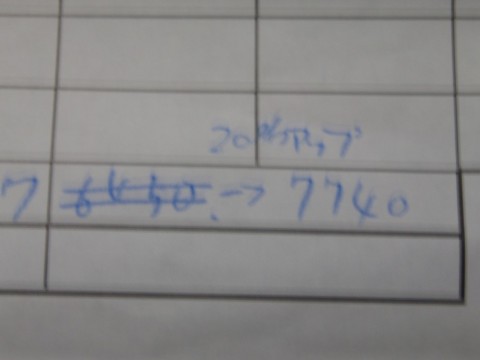 20%アップ
7 6450 → 7740